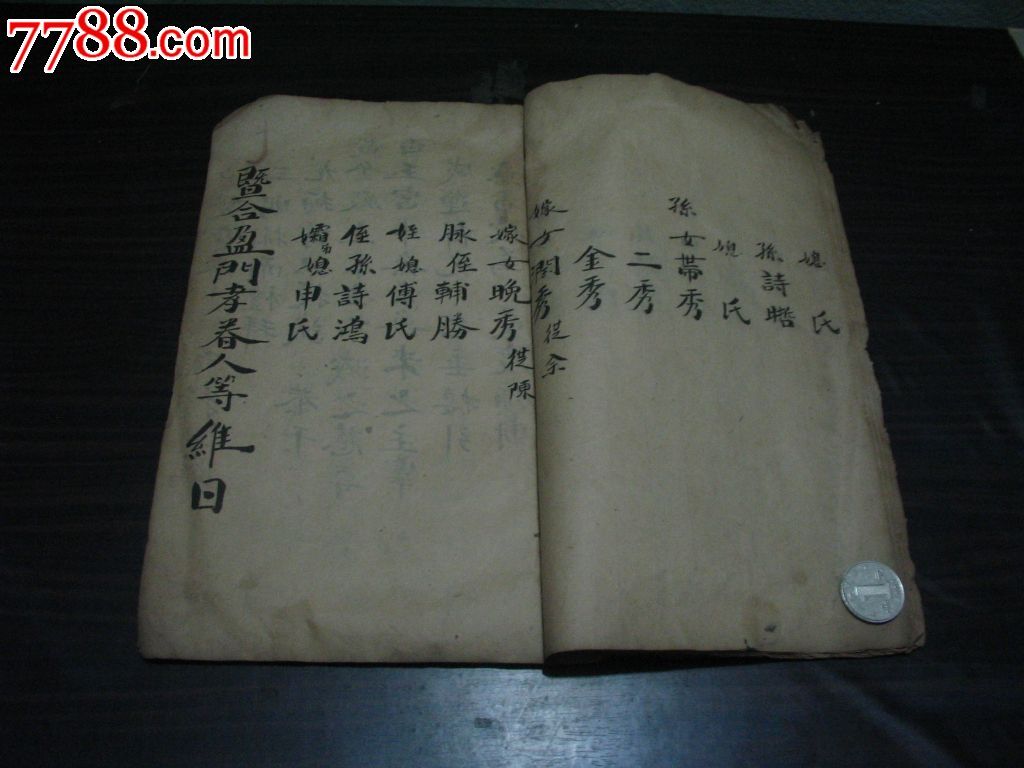 7788.com
媳 氏
孫詩晧
媳 氏
孫女帶秀
二秀
金秀
嫁女閏秀 從余
嫁女晚秀 從陳
脉侄輔勝
姪媳傅氏
侄孫詩鴻
媳申氏
暨合盈門孝眷人等維日
1